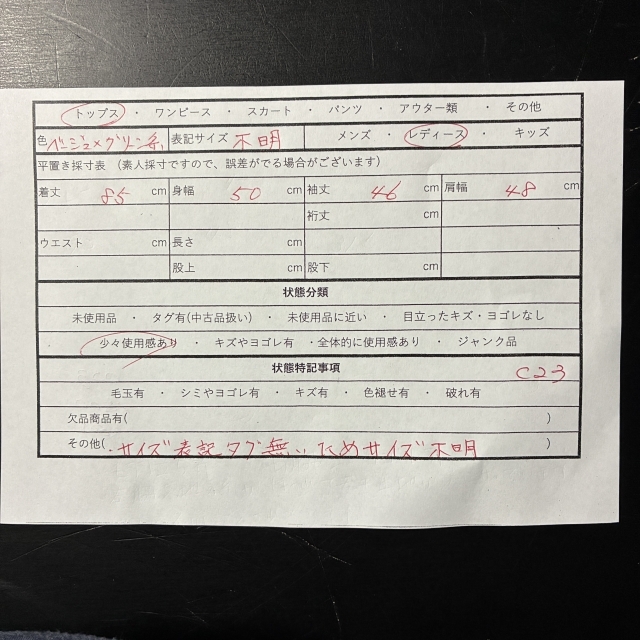 トップス ・ ワンピース ・ スカート ・ パンツ ・ アウター類 ・ その他
色 ベージュ×グリーン系 表記サイズ 不明 メンズ ・ レディース ・ キッズ
平置き採寸表 (素人採寸ですので、誤差がでる場合がございます)
着丈 85 cm 身幅 50 cm 袖丈 46 cm 肩幅 48 cm
裄丈 cm
ウエスト cm 長さ cm
股上 cm 股下 cm
状態分類
未使用品 ・ タグ有(中古品扱い) ・ 未使用品に近い ・ 目立ったキズ・ヨゴレなし
少々使用感あり ・ キズやヨゴレ有 ・全体的に使用感あり ・ ジャンク品
状態特記事項 C23
毛玉有 ・ シミやヨゴレ有 ・ キズ有 ・ 色褪せ有 ・ 破れ有
欠品商品有( )
その他( ・サイズ表記タグ無いためサイズ不明 )